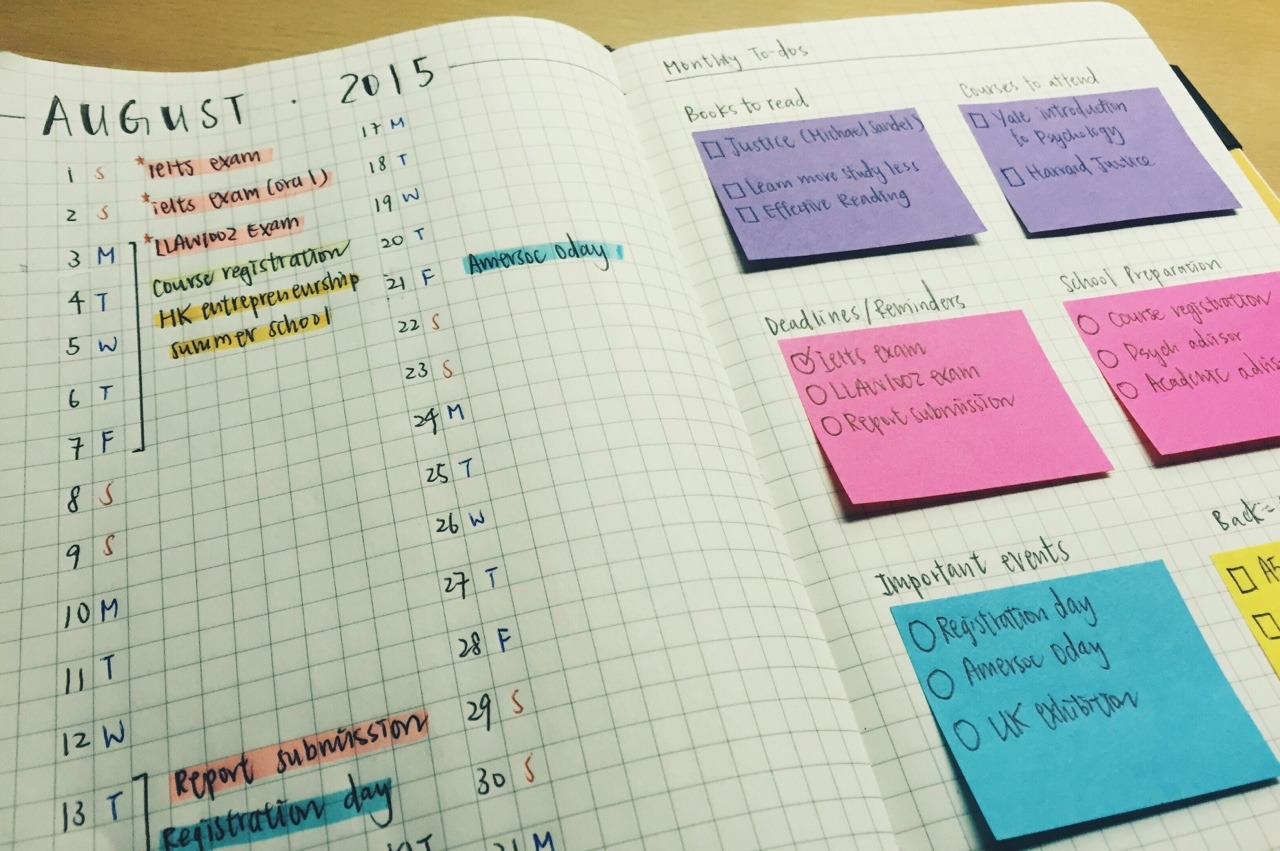 AUGUST · 2015
1 S *ielts exam
2 S *ielts exam (oral)
3 M *LLAW1002 Exam
Course registration
4 T HK entrepreneurship
summer school
5 W
6 T
7 F
8 S
9 S
10 M
11 T
12 W
13 T Report submission
Registration day
17 M
18 T
19 W
20 T
21 F Amersoc Oday
22 S
23 S
24 M
25 T
26 W
27 T
28 F
29 S
30 S
31 M
Monthly To-dos
Books to read
Justice (Michael Sandel)
Learn more study less
Effective Reading
Courses to attend
Yale introduction
to Psychology
Harvard Justice
Deadlines/Reminders
ielts exam
LLAW1002 exam
Report submission
School Preparation
Course registration
Psych advisor
Academic advis
Important events
Registration day
Amersoc Oday
UK exhibition
Back